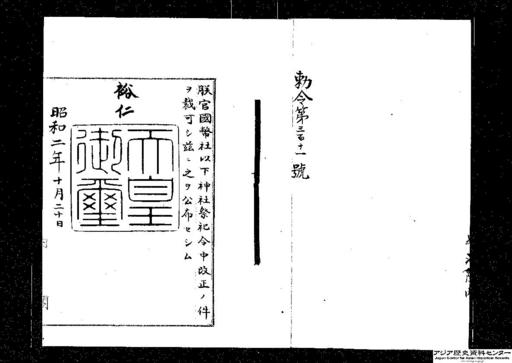 勅令第三百十一號
朕官國幣社以下神社祭祀令中改正ノ件
ヲ裁可シ茲ニ之ヲ公布セシム
裕仁
天皇御璽
昭和二年十月二十日
アジア歴史資料センター
Japan Center for Asian Historical Records